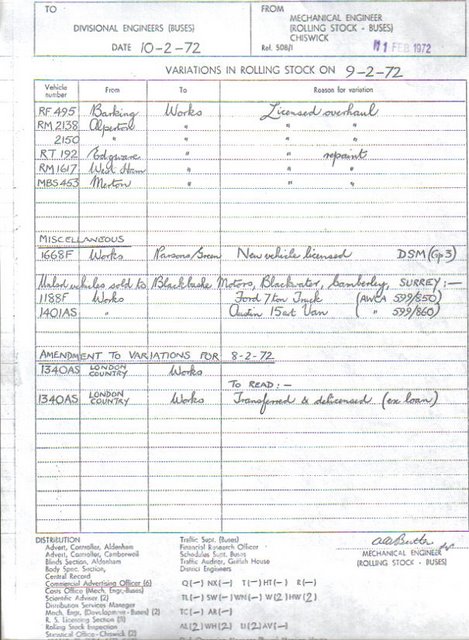 TO
DIVISIONAL ENGINEERS (BUSES)
DATE 10-2-72
FROM
MECHANICAL ENGINEER
(ROLLING STOCK - BUSES)
CHISWICK
Ref. 508/1
11 FEB 1972
VARIATIONS IN ROLLING STOCK ON 9-2-72
Vehicle number From To Reason for variation
RF 495 Barking Works Licensed overhaul
RM 2138 Alperton " " "
2150 " " " "
RT 192 Edgware " " repaint
RM 1617 West Ham " " "
MBS 453 Merton " " "
MISCELLANEOUS
1668F Works Parsons Green New vehicle licensed DSM (Gp 3)
vehicles sold to Blackbushe Motors, Blackwater, Camberley, SURREY:—
1188F Works Ford 7 ton Truck (AWCA 599/850)
1401AS " Austin 15cwt Van ( " 599/860)
AMENDMENT TO VARIATIONS FOR 8-2-72
1340AS LONDON COUNTRY Works
TO READ:—
1340AS LONDON COUNTRY Works Transferred & delicensed (ex loan)
DISTRIBUTION
Advert. Controller, Aldenham
Advert. Controller, Camberwell
Blinds Section, Aldenham
Body Spec. Section,
Central Record
Commercial Advertising Officer (6)
Costs Office (Mech. Engr.-Buses)
Scientific Adviser (2)
Distribution Services Manager
Mech. Engr. (Development - Buses) (2)
R. S. Licensing Section (3)
Rolling Stock Inspection
Statistical Office - Chiswick (2)
Traffic Supt. (Buses)
Financial Research Officer
Schedules Supt. Buses
Traffic Auditor, Griffith House
District Engineers
Q(—) NX(—) T(—) HT(—) R(—)
TL(—) SW(—) WN(—) W(2) HW(2)
TC(—) AR(—)
AL(2) WH(2) U(2) AV(—)
MECHANICAL ENGINEER
(ROLLING STOCK - BUSES)